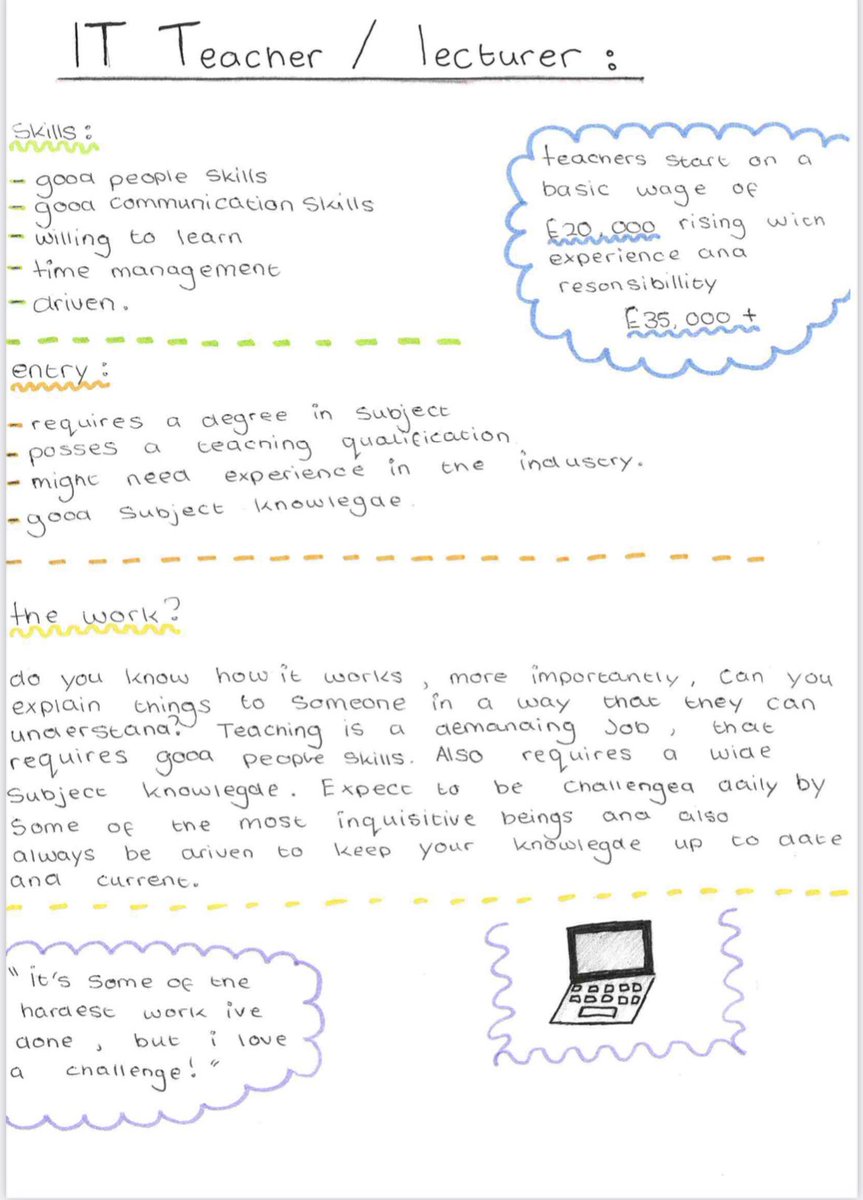 IT Teacher / lecturer :
Skills :
- good people skills
- good communication skills
- willing to learn
- time management
- driven.
teachers start on a
basic wage of
£20,000 rising with
experience and
resonsibillity
£35,000 +
entry :
- requires a degree in subject
- posses a teaching qualification
- might need experience in the industry.
- good subject knowlegde.
the work?
do you know how it works , more importantly, can you
explain things to someone in a way that they can
understand? Teaching is a demanding job , that
requires good people skills. Also requires a wide
subject knowlegde. Expect to be challenged daily by
some of the most inquisitive beings and also
always be driven to keep your knowlegde up to date
and current.
"it's some of the
hardest work ive
done , but i love
a challenge!"